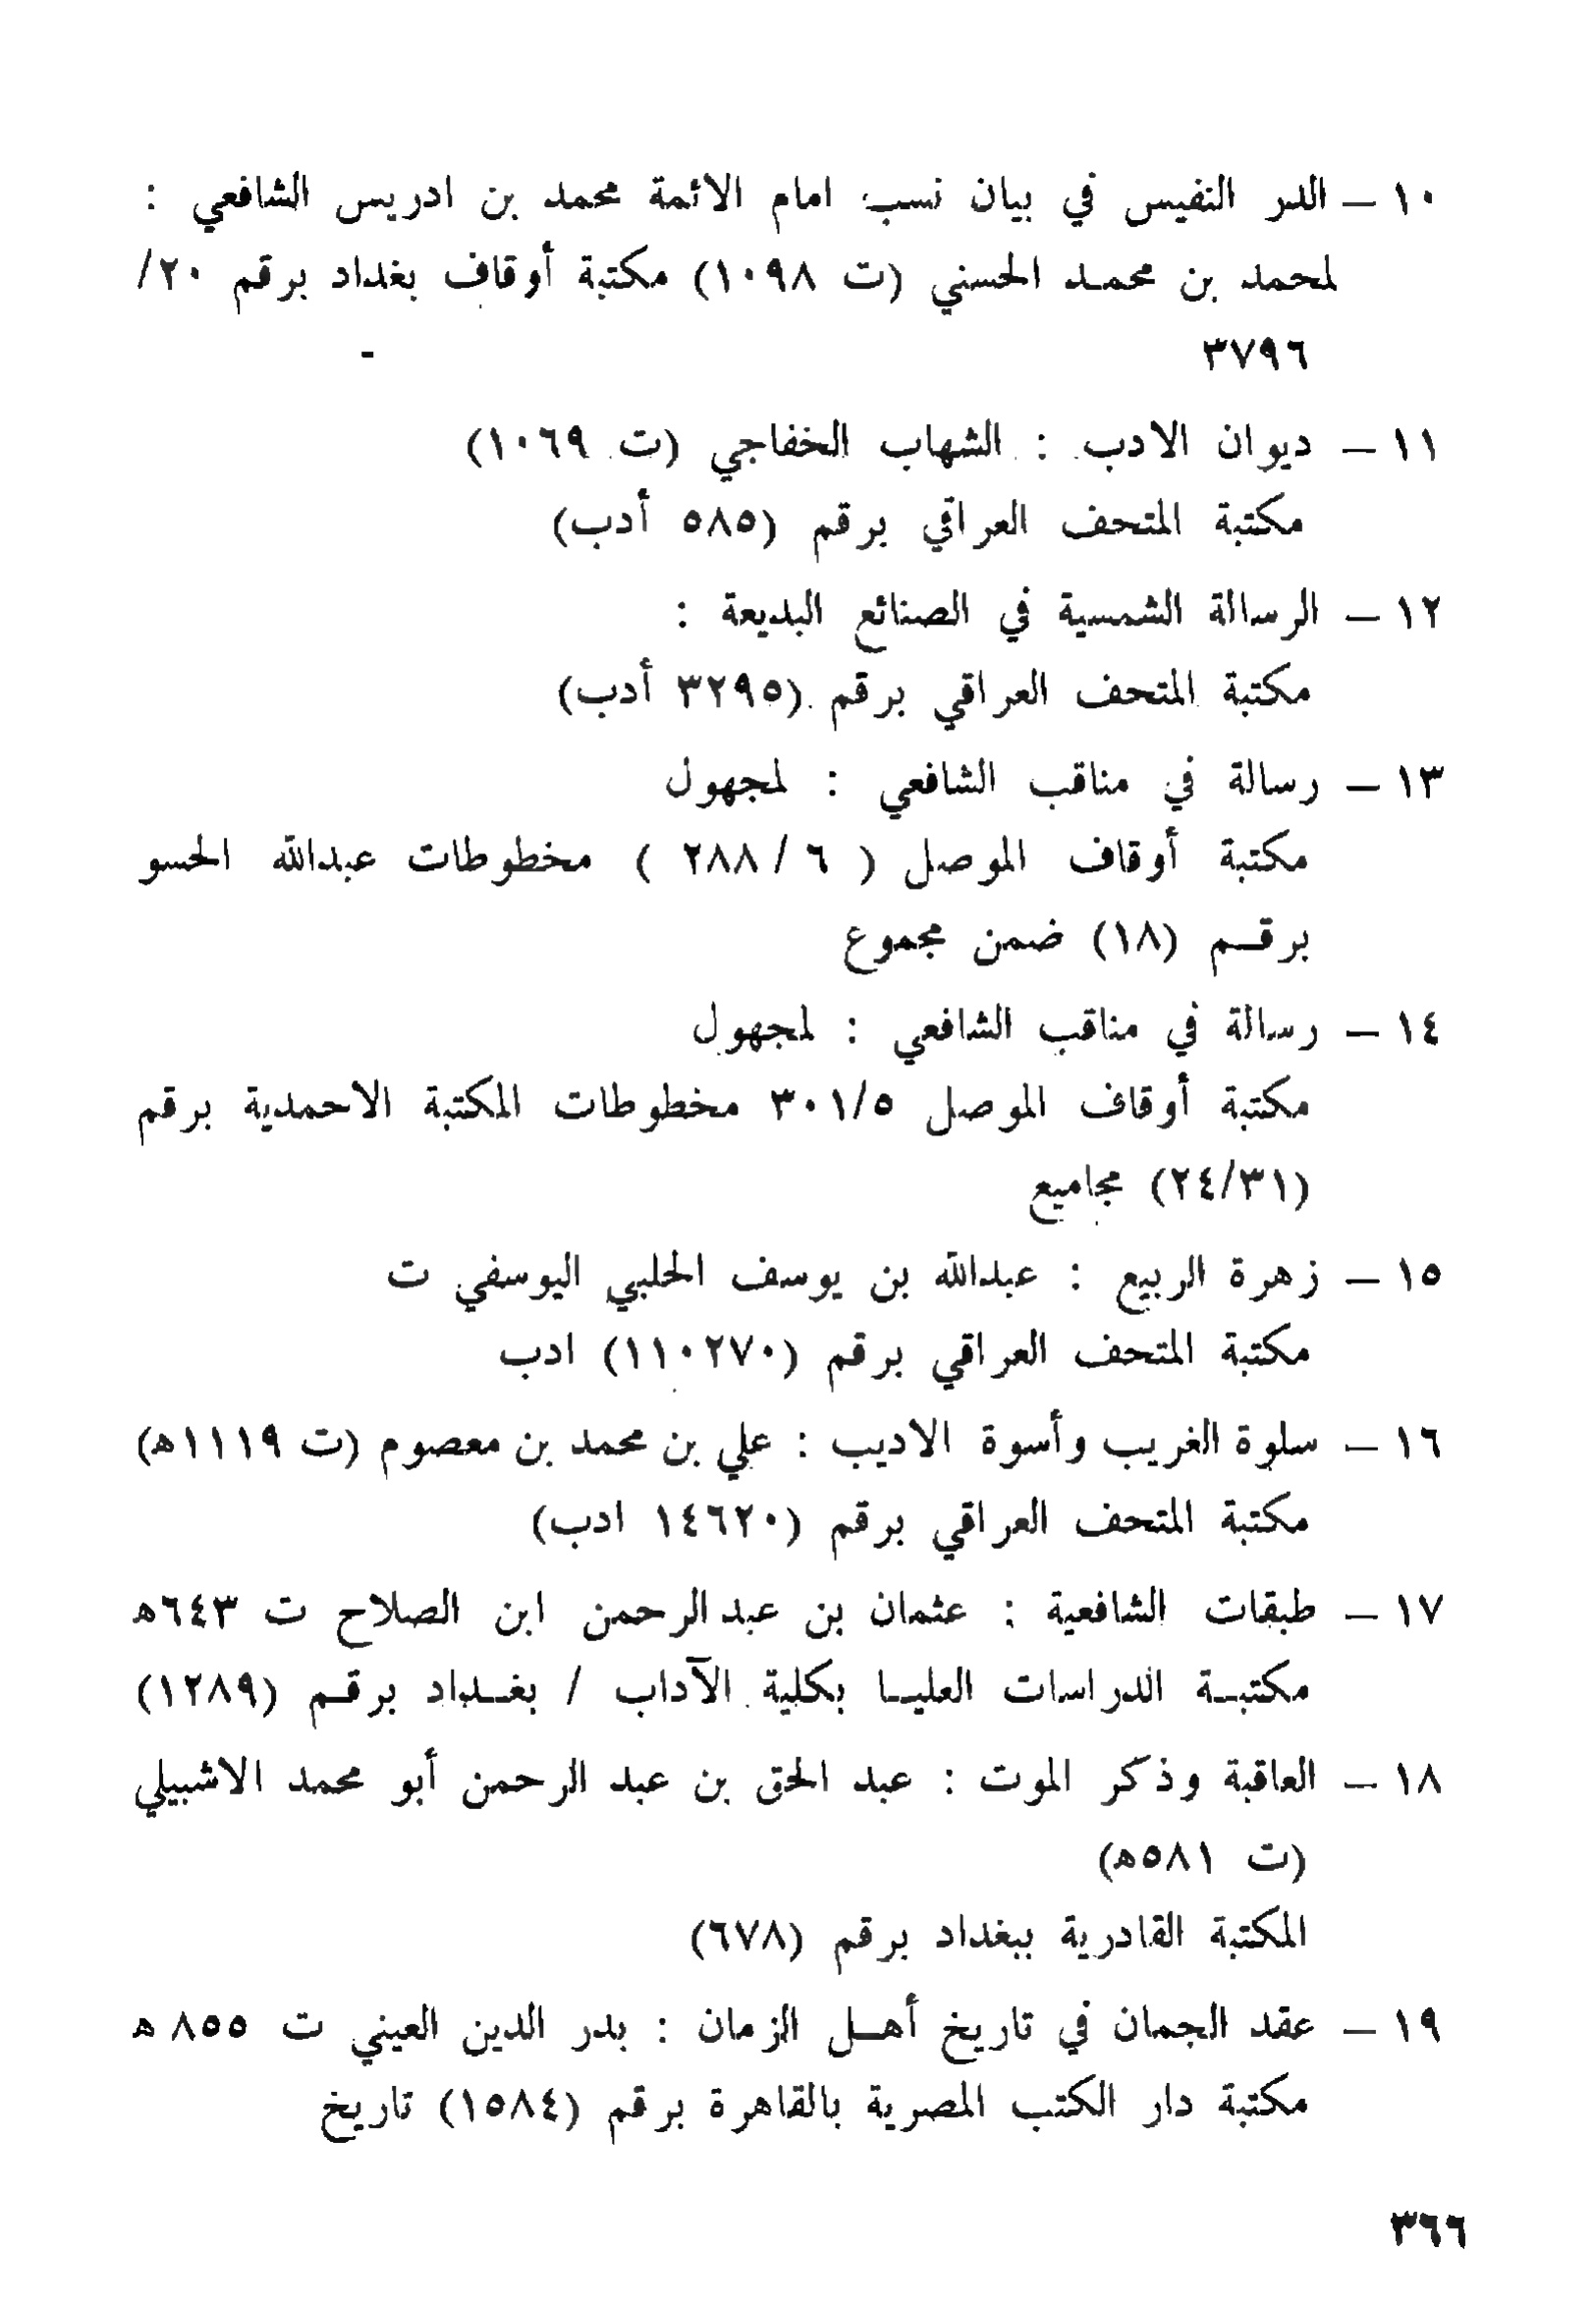 ١٠ – الدر النفيس في بيان نسب امام الائمة محمد بن ادريس الشافعي :
لمحمد بن محمـد الحسني (ت ١٠٩٨) مكتبة أوقاف بغداد برقم ٢٠/
٣٧٩٦
١١ – ديوان الادب : الشهاب الخفاجي (ت ١٠٦٩)
مكتبة المتحف العراقي برقم (٥٨٥ أدب)
١٢ – الرسالة الشمسية في الصنائع البديعة :
مكتبة المتحف العراقي برقم (٣٢٩٥ أدب)
١٣ – رسالة في مناقب الشافعي : لمجهول
مكتبة أوقاف الموصل ( ٦ / ٢٨٨ ) مخطوطات عبدالله الحسو
برقـم (١٨) ضمن مجموع
١٤ – رسالة في مناقب الشافعي : لمجهول
مكتبة أوقاف الموصل ٣٠١/٥ مخطوطات المكتبة الاحمدية برقم
(٢٤/٣١) مجاميع
١٥ – زهرة الربيع : عبدالله بن يوسف الحلبي اليوسفي ت
مكتبة المتحف العراقي برقم (١١٠٢٧٠) ادب
١٦ – سلوة الغريب وأسوة الاديب : علي بن محمد بن معصوم (ت ١١١٩هـ)
مكتبة المتحف العراقي برقم (١٤٦٢٠ ادب)
١٧ – طبقات الشافعية : عثمان بن عبدالرحمن ابن الصلاح ت ٦٤٣هـ
مكتبـة الدراسات العليـا بكلية الآداب / بغـداد برقـم (١٢٨٩)
١٨ – العاقبة وذكر الموت : عبد الحق بن عبد الرحمن أبو محمد الاشبيلي
(ت ٥٨١هـ)
المكتبة القادرية ببغداد برقم (٦٧٨)
١٩ – عقد الجمان في تاريخ أهـل الزمان : بدر الدين العيني ت ٨٥٥ هـ
مكتبة دار الكتب المصرية بالقاهرة برقم (١٥٨٤) تاريخ
٣٦٦